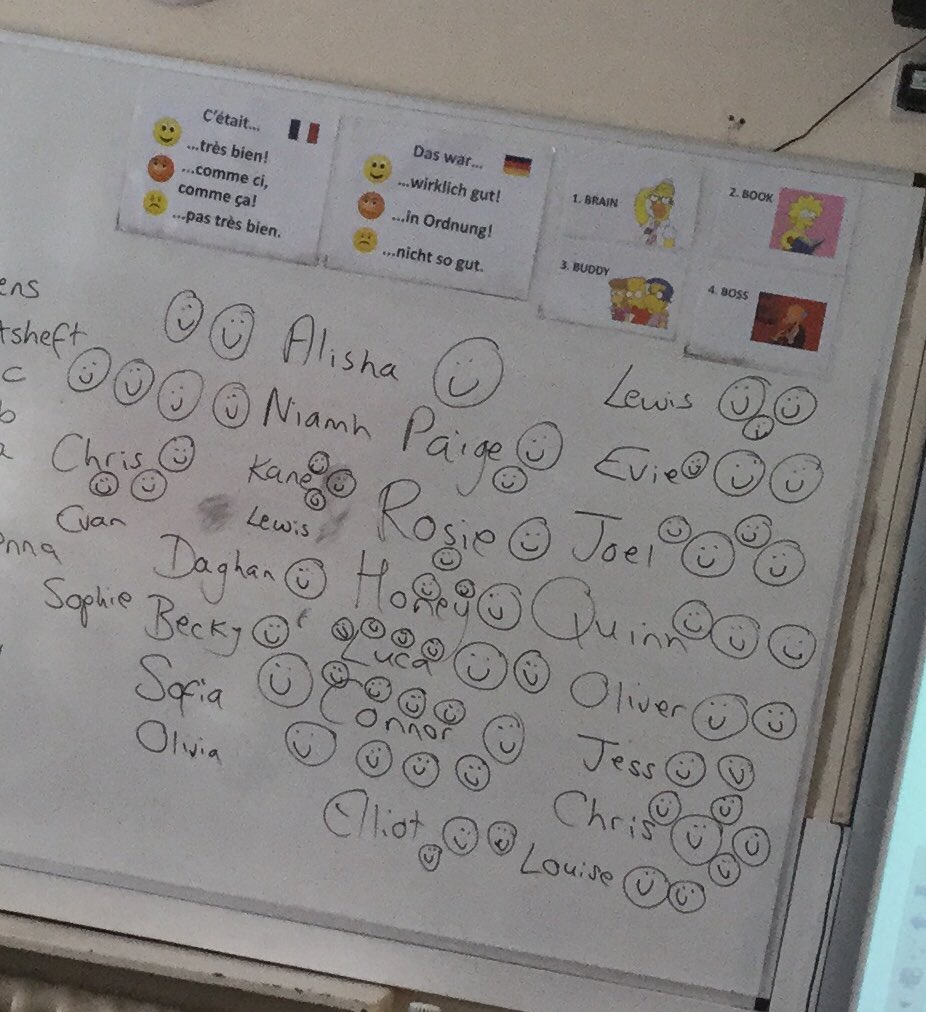 C'était...
...très bien!
...comme ci,
comme ça!
...pas très bien.
Das war...
...wirklich gut!
...in Ordnung!
...nicht so gut.
1. BRAIN
2. BOOK
3. BUDDY
4. BOSS
Alisha
Lewis
Niamh
Paige
Evie
Chris
Kane
Rosie
Joel
Evan
Lewis
Daghan
Honey
Quinn
Sophie
Becky
Luca
Oliver
Sofia
Connor
Jess
Olivia
Chris
Elliot
Louise